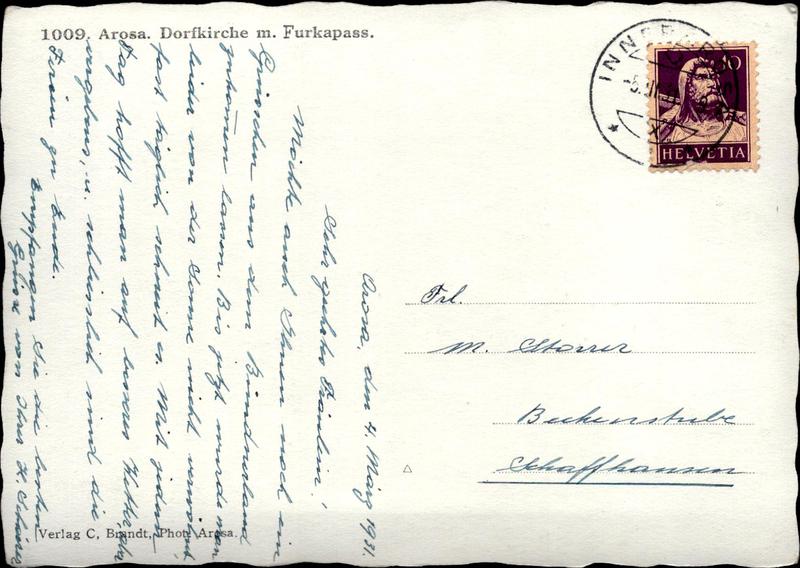 1009. Arosa. Dorfkirche m. Furkapass.
INNER
10
HELVETIA
Arosa, den 4. März 1931.
Sehr geehrtes Fräulein!
Möchte auch Ihnen noch ein
Grüsschen aus dem Bündnerland
zukommen lassen. Bis jetzt wurde man
leider von der Sonne nicht verwöhnt
fast täglich schneit es. Mit jedem
Tag hofft man auf besseres Wetter, doch
vergebens, u. schliesslich sind die
Ferien zu Ende.
Empfangen Sie die besten
Grüsse von Ihrer H.
Frl.
M. Storrer
Beckenstube
Schaffhausen
Verlag C. Brandt, Phot. Arosa.